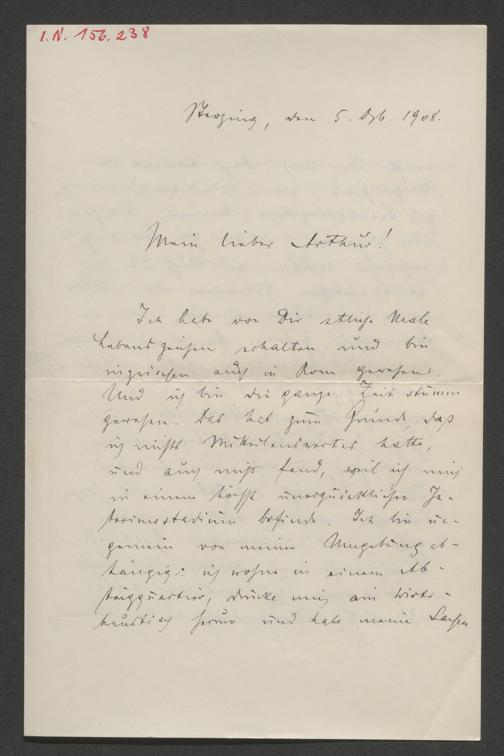 I.N. 156.238
Sterzing, den 5. Dzb. 1908.
Mein lieber Arthur!
Ich habe von Dir etliche Male
Lebenszeichen erhalten und bin
inzwischen auch in Rom gewesen.
Und ich bin die ganze Zeit stumm
gewesen. Das hat zum Grunde, daß
ich nichts Mitteilenswertes hatte,
und auch nichts fand, weil ich mich
in einem höchst unerquicklichen In-
terimsstadium befinde. Ich bin un-
gemein von meiner Umgebung ab-
hängig: ich wohne in einem Ab-
steigquartier, drücke mich am Wirts-
haustisch herum und habe meine Sachen